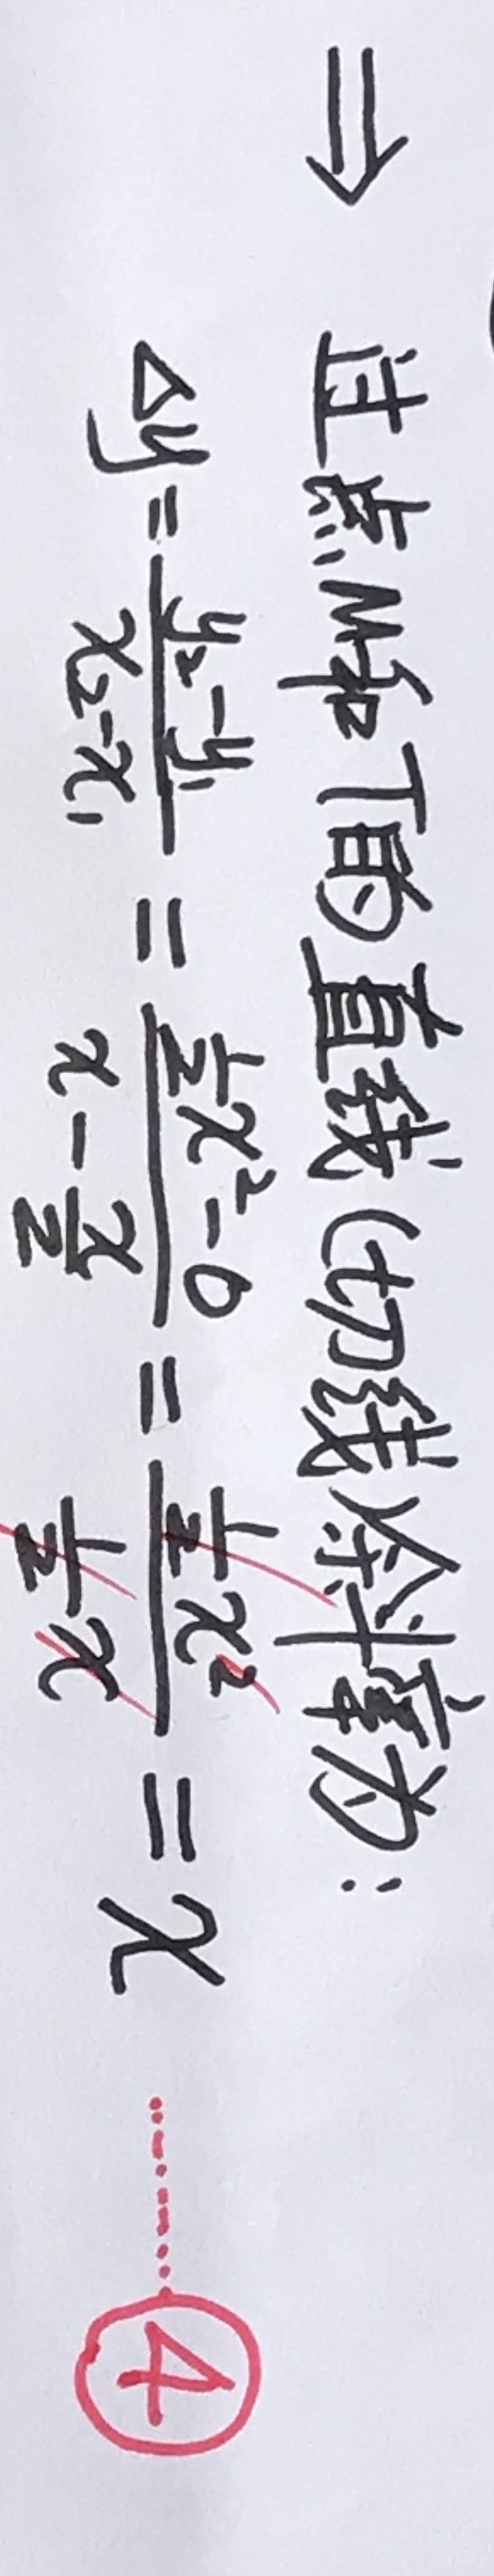 ⇒ 过点M和T的直线(切线)斜率为:
△y = \frac{y₂-y₁}{x₂-x₁} = \frac{\frac{1}{2}x²-0}{x-\frac{x}{2}} = \frac{\frac{1}{2}x²}{\frac{1}{2}x} = x ………④